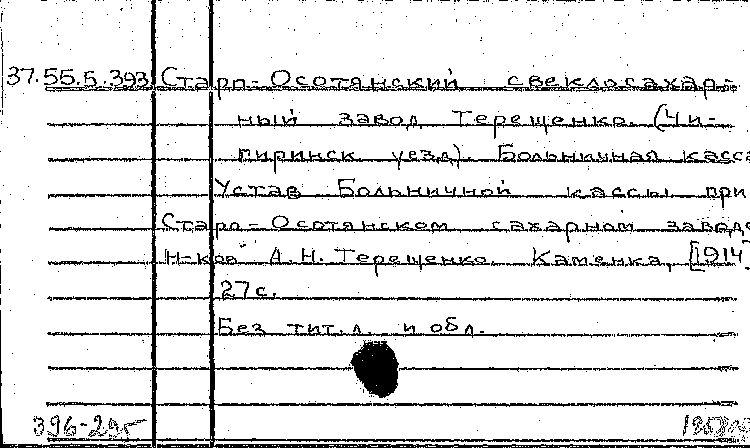 37.55.5.393 Старо-Осотянский свеклосахар-
ный завод Терещенко. (Чи-
гиринск. уезд). Больничная касса
Устав Больничной кассы при
Старо-Осотянском сахарном заводе
Н-ков А.Н. Терещенко. Каменка, [1914.
27 с.
Без тит. л. и обл.
396-295